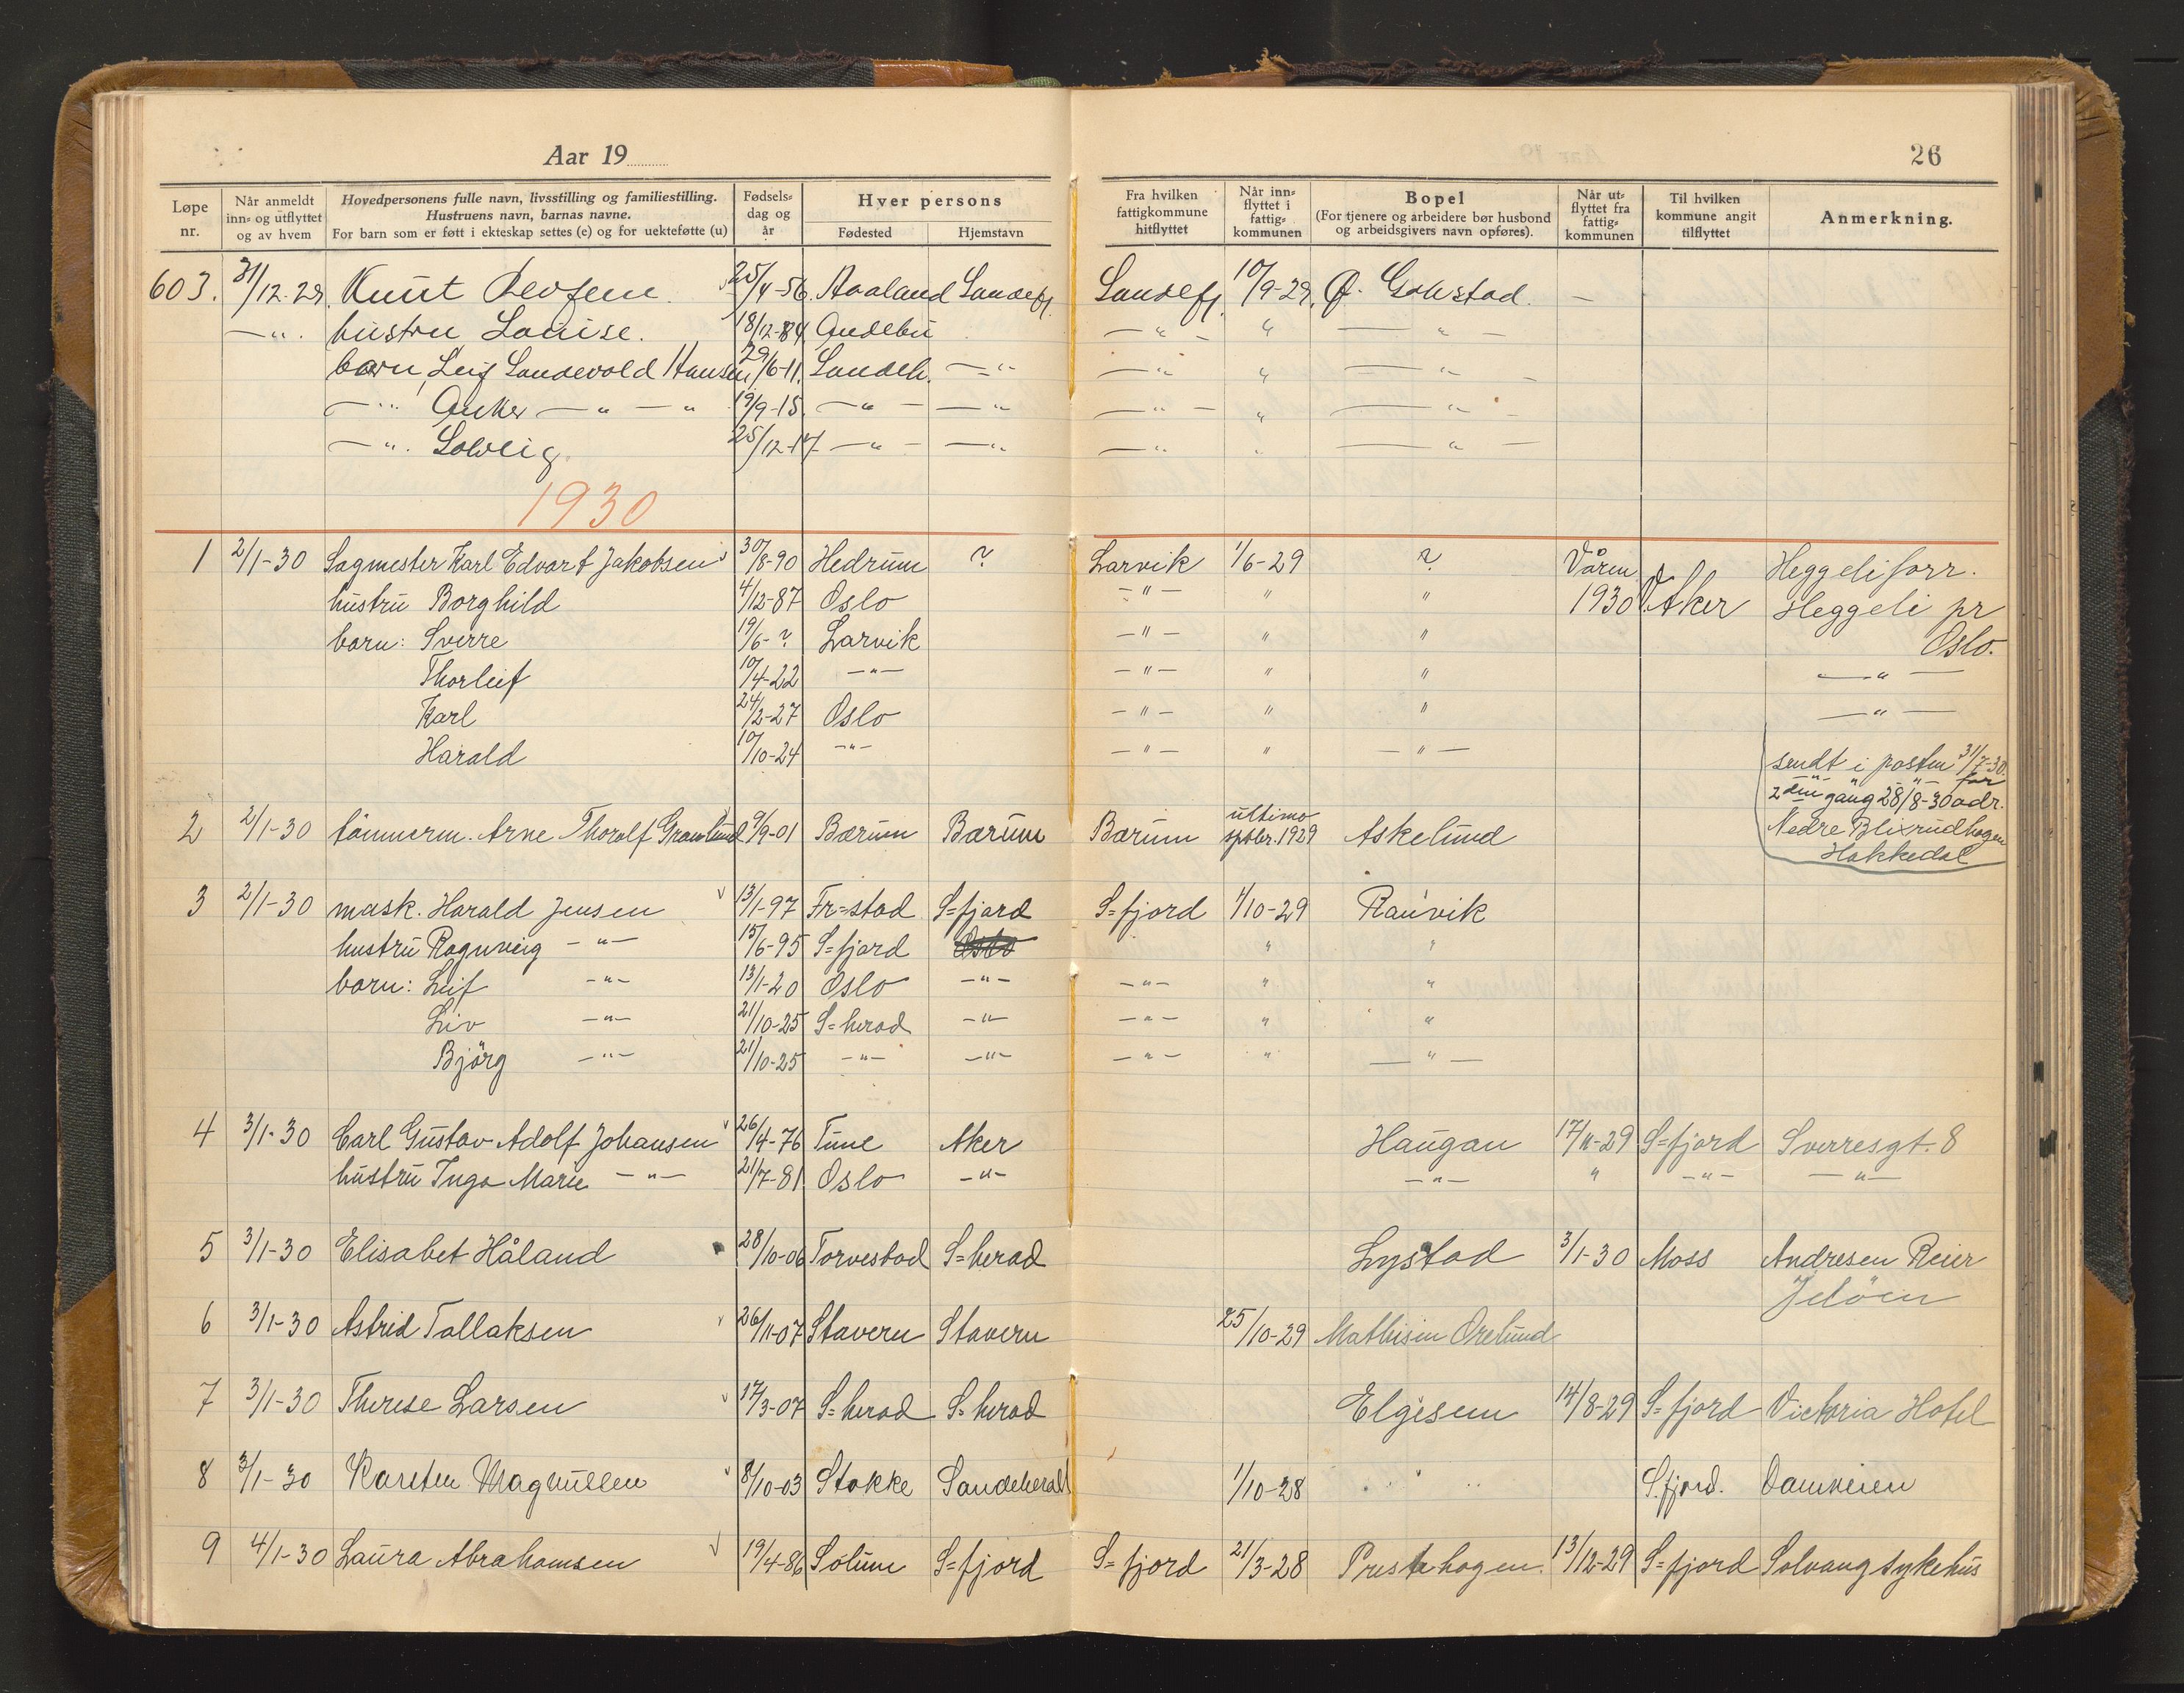 Aar 19
26
Løpe nr. Når anmeldt inn- og utflyttet og av hvem Hovedpersonens fulle navn, livsstilling og familiestilling. Hustruens navn, barnas navne. For barn som er født i ekteskap settes (e) og for uekteføtte (u) Fødselsdag og år Hver persons Fødested Hjemstavn Fra hvilken fattigkommune hitflyttet Når innflyttet i fattigkommunen Bopel (For tjenere og arbeidere bør husbond og arbeidsgivers navn opføres). Når utflyttet fra fattigkommunen Til hvilken kommune angit tilflyttet Anmerkning.
603. 31/12-29. Knut 25/4-56. Sandefj. Sandefj. 10/9-29. Ø. Gokstad. —
—"— hustru Louise. 18/12-84 Andebu —"— " —"—
barn Leif Sandevold Hansen 29/6-11. Sandeh. —"— —"— " —"—
—"— Anker —"—"— 19/9-15 —"— —"— —"— " —"—
—"— Solveig 25/12-17 —"— —"— —"— " —"—
1930
1 2/1-30 Sagmester Karl Edvart Jakobsen 30/8-90 Hedrum ? Larvik 1/6-29 ? Våren Heggeli forr.
hustru Borghild 4/12-87 Oslo —"— " " 1930 V. Aker Heggeli pr
barn: Sverre 19/6-? Larvik —"— " " Oslo.
Thorleif 10/4-22 —"— —"— " " —"—
Karl 24/2-27 Oslo —"— " " —"—
Harald 10/10-24 —"— —"— " —"— sendt i posten 31/7-30.
—"— " —"— for
2den gang 28/8-30 adr.
2 2/1-30 tömmerm. Arne Thorolf Granlund 9/9-01 Bærum Bærum Bærum ultimo sptbr. 1929 Askelund Nedre Blixrudhagen
Hakkedal
3 2/1-30 mask. Harald Jensen 13/1-97 Fr=stad S=fjord S=fjord 1/10-29 Ranvik
hustru Ragnveig —"— 15/6-95 S=fjord Oslo " "
barn: Leif —"— 13/1-20 Oslo —"— —"— " "
Liv —"— 21/10-25 S=herad —"— —"— " "
Björg —"— 21/10-25 —"— —"— —"— " —"—
4 3/1-30 Carl Gustav Adolf Johansen 26/4-76 Tune Aker Haugan 17/11-29 S=fjord Sverresgt. 8
hustru Inga Marie —"— 21/7-81 Oslo —"— —"— " —"— —"—
5 3/1-30 Elisabet Håland 28/10-06 Torvestad S=herad Lystad 3/1-30 Moss Andresen Reier
Jelöen
6 3/1-30 Astrid Tallaksen 26/11-07 Stavern Stavern 25/10-29 Mathisen Orelund
7 3/1-30 Therese Larsen 17/3-07 S=herad S=herad Elgesem 14/8-29 S=fjord Victoria Hotel
8 3/1-30 Karsten Magnussen 8/10-03 Stokke Sandeherad 1/10-28 " " S.fjord. Damveien
9 4/1-30 Laura Abrahamsen 19/4-86 Solum S=fjord S=fjord 21/3-28 Prestehagen. 13/12-29 S=fjord Solvang sykehus